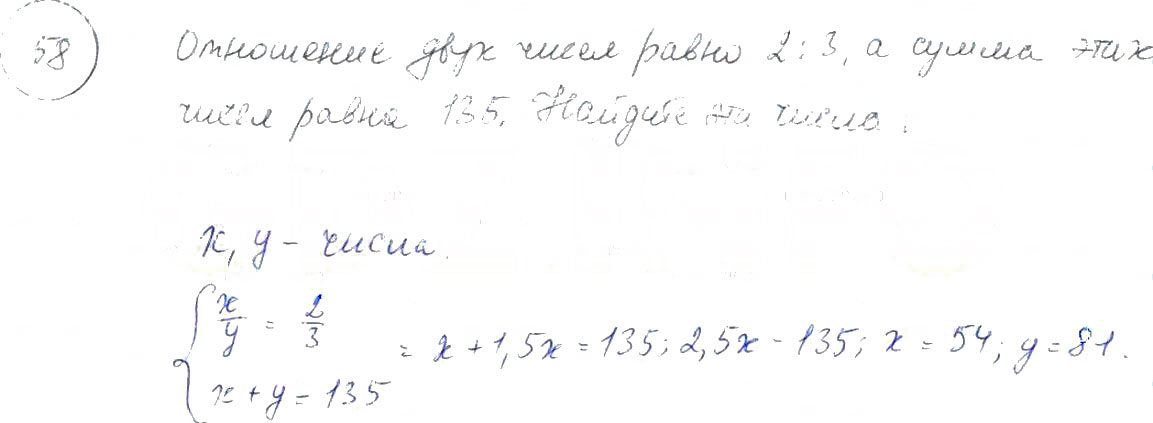 58
Отношение двух чисел равно 2:3, а сумма этих
чисел равна 135. Найдите эти числа.
x, y - числа.
x/y = 2/3
= x + 1,5x = 135; 2,5x - 135; x = 54; y = 81.
x + y = 135